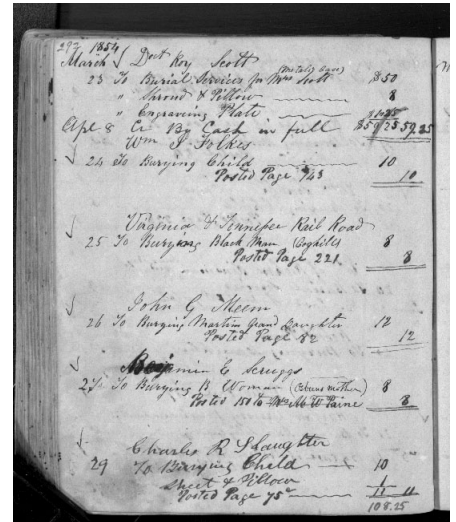 297 1854
March Doct Roy Scott
23 To Burial Services for Mrs Scott (Metalic Case) $50
" Shroud & Pillow 8
" Engraving Plate 1.25
Apl 8 Cr By Cash in full $59.25 59.25
Wm J Folkes
24 To Burying Child 10
Posted Page 143 10
Virginia & Tennessee Rail Road
25 To Burying Black Man (Coghill) 8
Posted Page 221 8
John G Meem
26 To Burying Martins Grand Daughter 12
Posted Page 82 12
Benjamin C Scruggs
To Burying B Woman mother) 8
Posted 150 to W Paine 8
Charles R Slaughter
29 To Burying Child 10
Sheet & Pillow 1
Posted Page 75 11 11
108.25